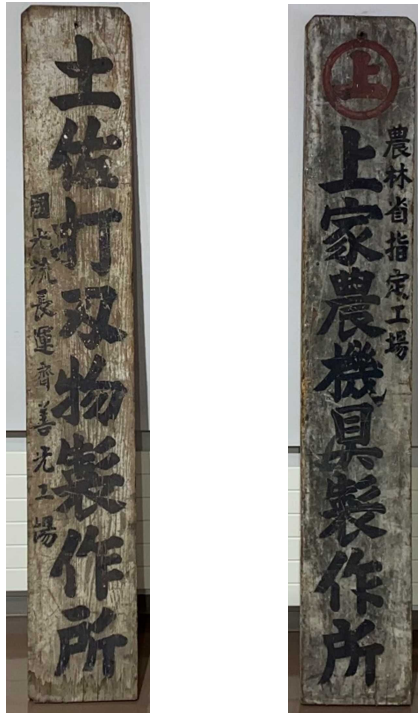 土佐打刃物製作所
國光流長運齊善光工場
上
農林省指定工場
上家農機具製作所